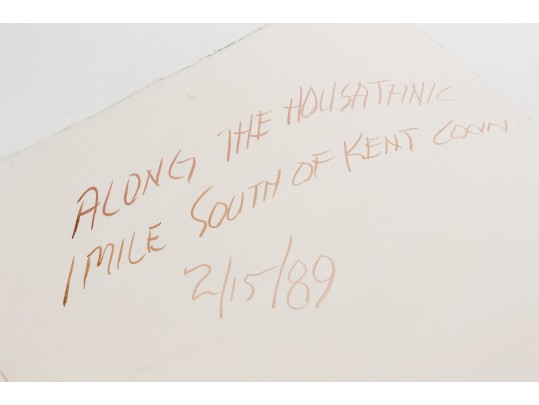 ALONG THE HOUSATONIC
1 MILE SOUTH OF KENT CONN
2/15/89